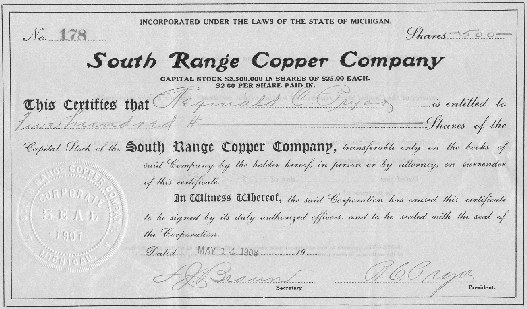 INCORPORATED UNDER THE LAWS OF THE STATE OF MICHIGAN.
No 178 Shares
South Range Copper Company
CAPITAL STOCK $2,500,000 IN SHARES OF $25.00 EACH.
$2.00 PER SHARE PAID IN.
This Certifies that Reginald C. Pryor is entitled to
hundred Shares of the
Capital Stock of the South Range Copper Company, transferable only on the books of
said Company by the holder hereof, in person or by attorney, on surrender
of this certificate.
In Witness Whereof, the said Corporation has caused this certificate
to be signed by its duly authorized officers, and to be sealed with the seal of
the Corporation.
Dated MAY 190 19
Secretary President.
RANGE COPPER COMPANY
CORPORATE
SEAL
MICHIGAN